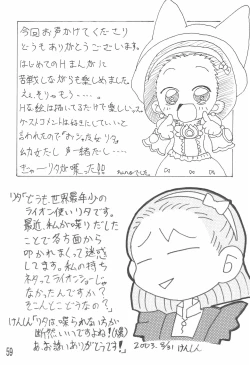 今回お声かけてくださり
どうもありがとうございます。
はじめてのHまんがに
苦戦しながらも楽しめました。
えぇ、そりゃもう……。
Hな絵は描いてるだけで楽しい
ゲストコメントは好きにしていいと
言われたので
幼女だし声一緒だし…。
きゃーリタが喋った!!
リタ「どうも、世界最年少の
ライオン使いリタです。
最近、私が喋りだした
ことで各方面から
叩かれまくって迷惑
してます。私の持ち
ネタってライオンショーじゃ
なかったんですか?
そこんとこどうなの?」
けんしん「リタは、喋られない方が
断然いいですよね!(爆)
お誘いありがとうです!」
2003. けんしん
59